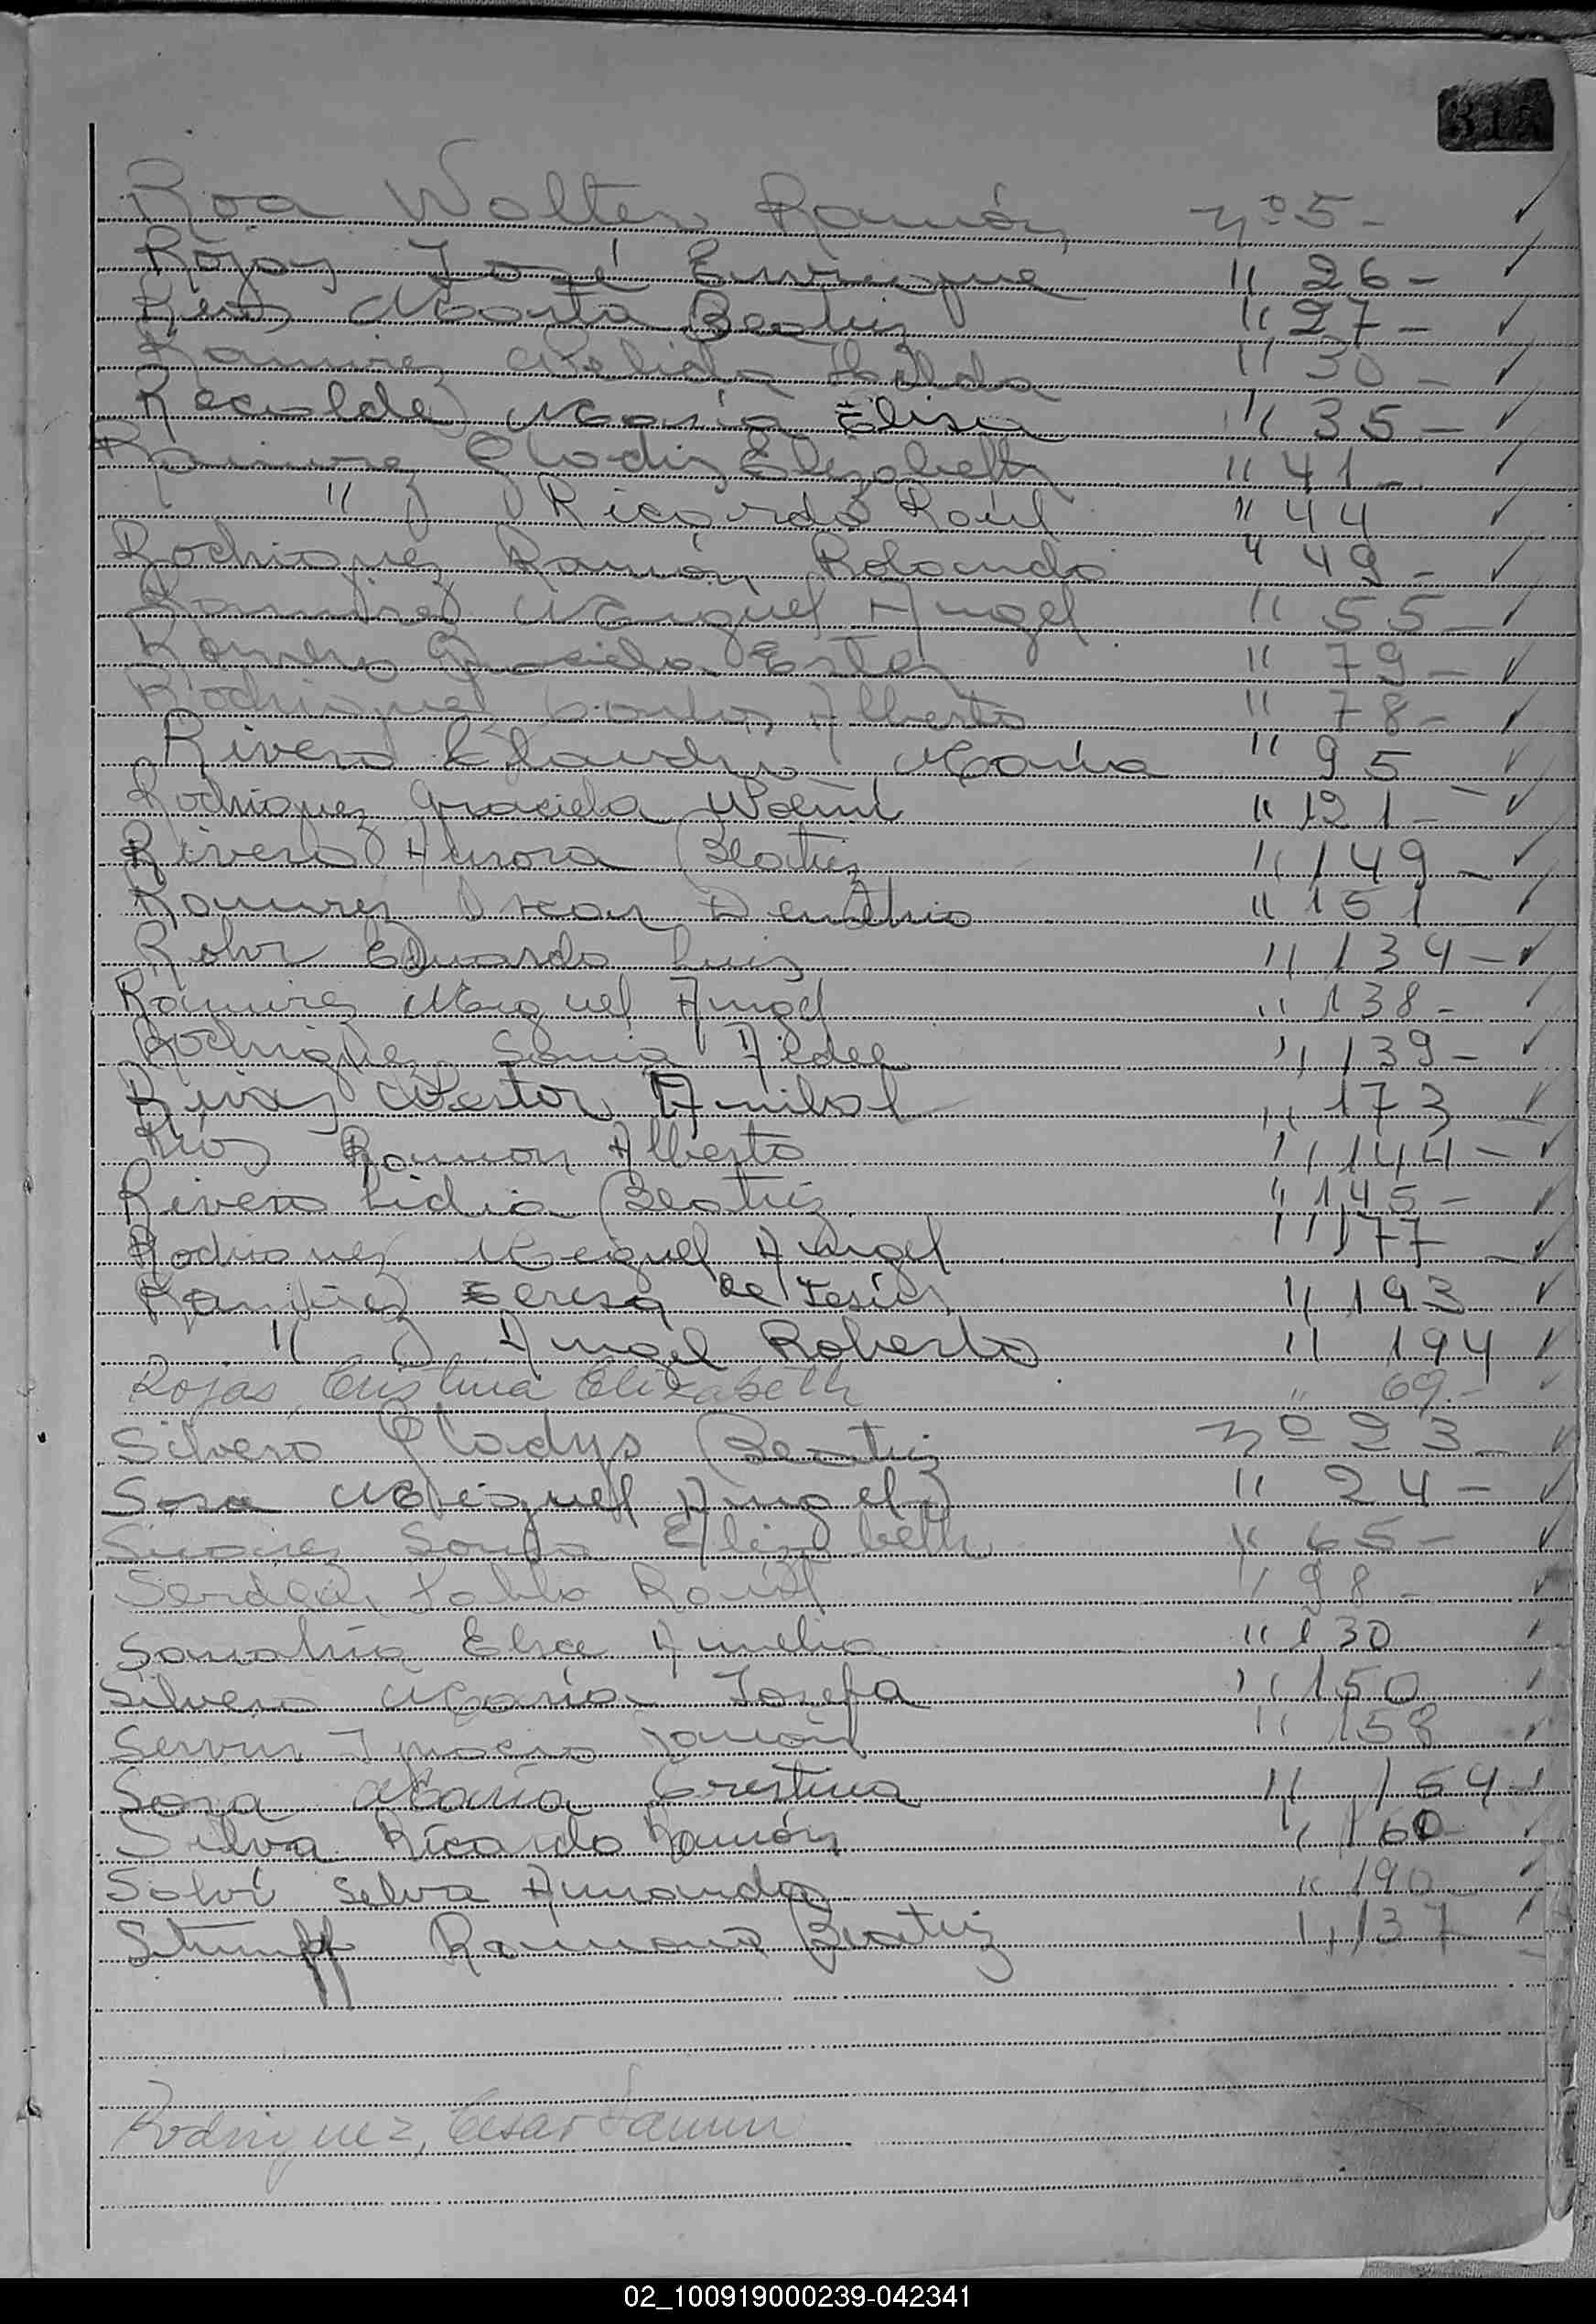 315
Roa Walter Ramón nº 5 - ✓
Rojas José Enrique " 26 - ✓
Rios Marta Beatriz " 27 - ✓
Ramirez Nelida Hilda " 30 - ✓
Recalde María Elisa " 35 - ✓
Ramirez Gladis Elizabeth " 41 - ✓
" Ricardo Raúl " 44 ✓
Rodriguez Ramón Rolando " 49 - ✓
Ramirez Miguel Angel " 55 - ✓
Romero Graciela Ester " 79 - ✓
Rodriguez Carlos Alberto " 78 - ✓
Rivero Claudia María " 95 - ✓
Rodriguez Graciela Noemí " 121 - ✓
Rivero Aurora Beatriz " 149 - ✓
Ramirez Oscar Demetrio " 151 ✓
Rohr Eduardo Luis " 134 - ✓
Ramirez Miguel Angel " 138 - ✓
Rodriguez Sonia Aidee " 139 - ✓
Rivas Nestor Anibal " 173 ✓
Rios Ramon Alberto " 144 - ✓
Rivero Lidia Beatriz " 145 - ✓
Rodriguez Miguel Angel " 177 - ✓
Ramirez Teresa de Jesús " 193 ✓
" Angel Roberto " 194 ✓
Rojas, Cristina Elizabeth " 69.- ✓
Silvero Gladys Beatriz nº 23 - ✓
Sosa Miguel Angel " 24 - ✓
Suarez Sonia Elizabeth " 65 - ✓
Pablo Raúl " 98 - ✓
Elsa Amelia " 130 ✓
Silvero María Josefa " 150 ✓
Servin Ignacio Ramón " 158 ✓
Sosa María Cristina " 164 - ✓
Silva Ricardo Ramón " 160 ✓
Selva Armanda " 190 ✓
Stumpff Ramona Beatriz " 137 ✓
Rodriguez, Cesar
02_100919000239-042341